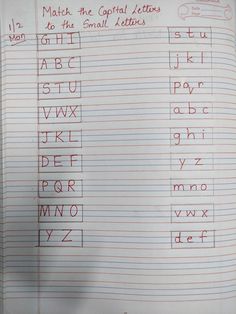 Match the Capital Letters
to the Small Letters
1/2
Mon
G H I    s t u
A B C    j k l
S T U    p q r
V W X    a b c
J K L    g h i
D E F    y z
P Q R    m n o
M N O    v w x
Y Z    d e f